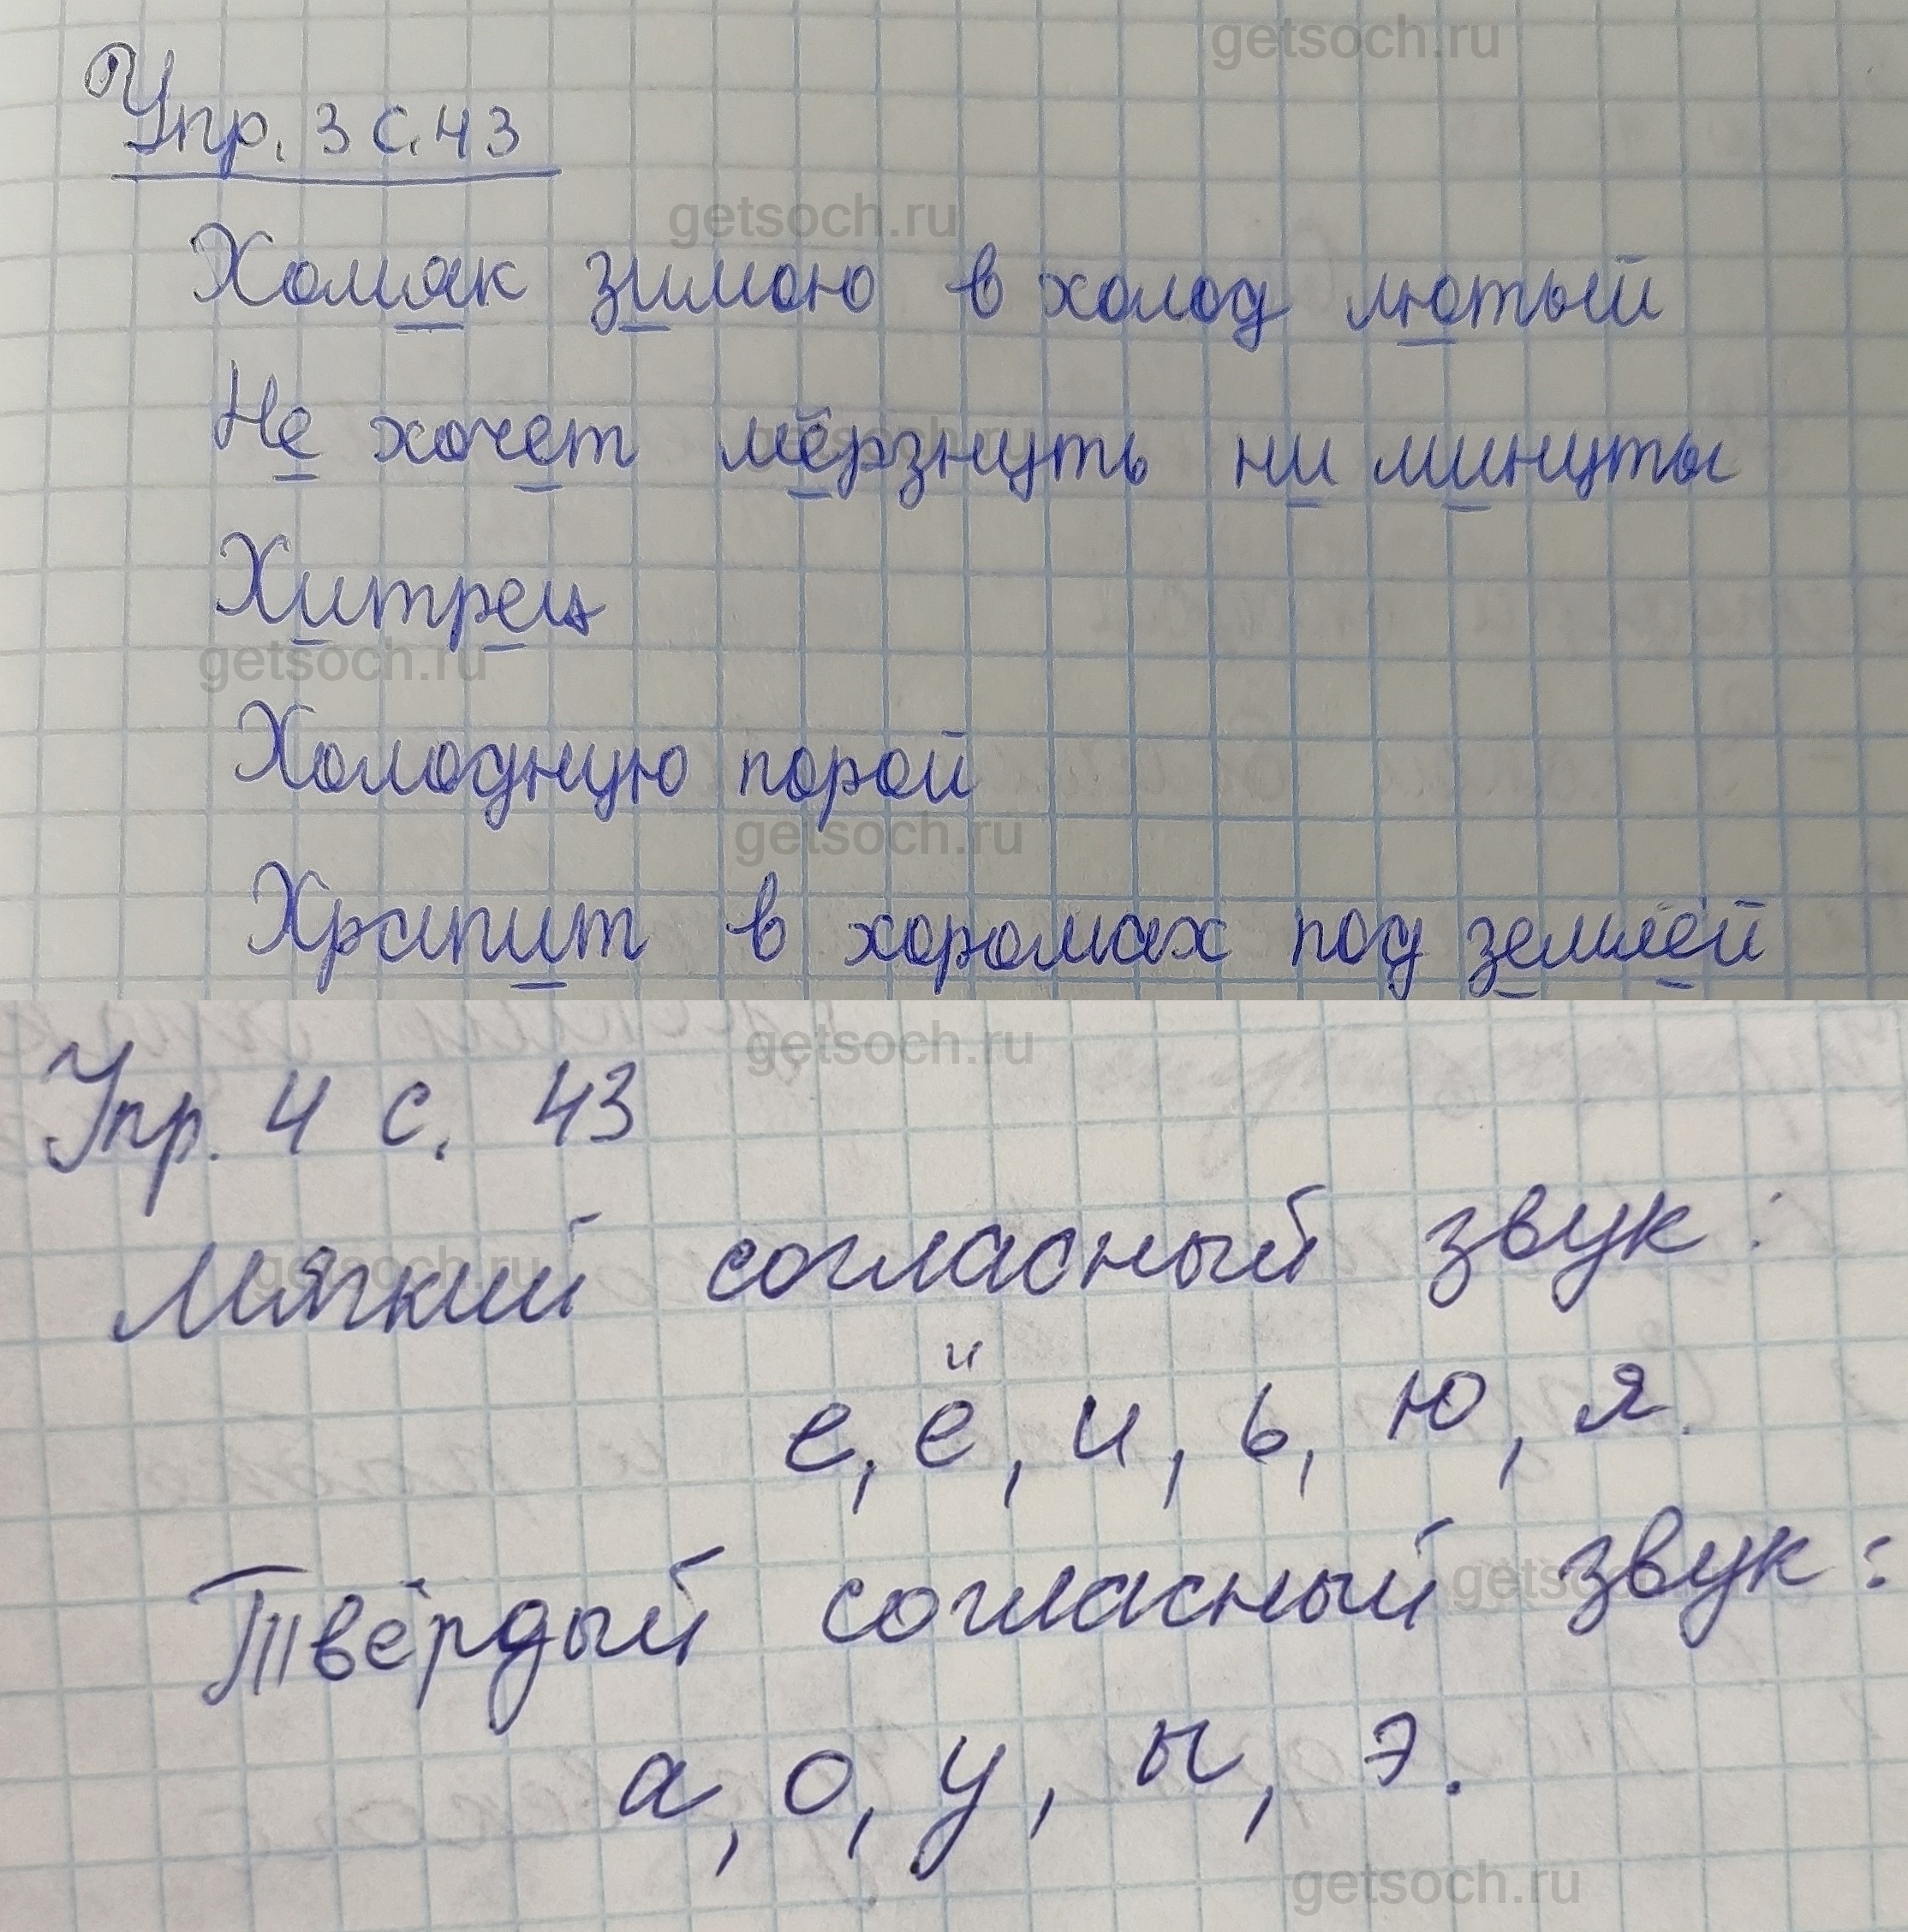 getsoch.ru
Упр. 3 с. 43
getsoch.ru
Хомяк зимою в холод лютый
Не хочет мёрзнуть ни минуты
Хитрец
getsoch.ru
Холодную порой
getsoch.ru
Храпит в хоромах под землёй
getsoch.ru
Упр. 4 с. 43
Мягкий согласный звук:
getsoch.ru
е, ё, и, ь, ю, я.
Твёрдый согласный звук:
а, о, у, ы, э.
getsoch.ru